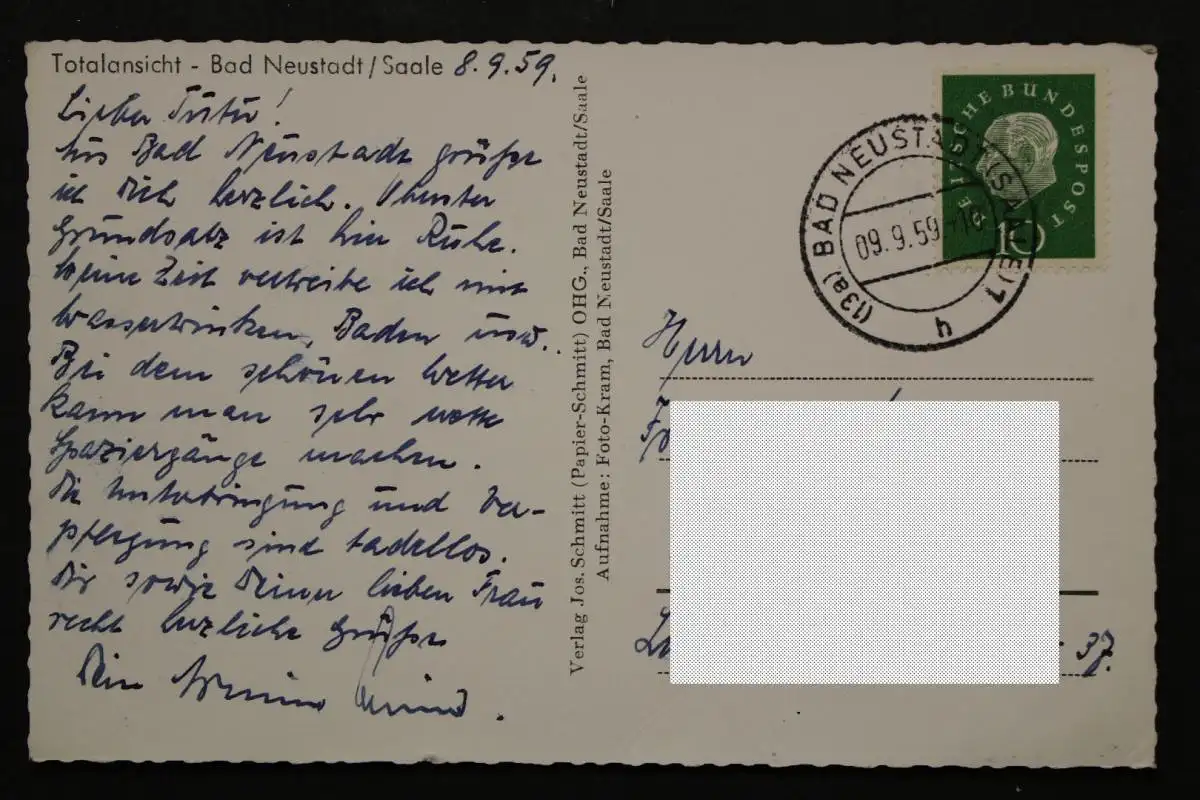 Totalansicht - Bad Neustadt/Saale 8.9.59.
Lieber
Aus Bad Neustadt grüße
ich Dich herzlich. Oberster
Grundsatz ist hier Ruhe.
Meine Zeit vertreibe ich mit
Wassertrinken, Baden usw.
Bei dem schönen Wetter
kann man sehr nette
Spaziergänge machen.
Die Unterbringung und Ver-
pflegung sind tadellos.
Dir sowie Deiner lieben Frau
recht herzliche Grüße
Dein
Verlag Jos. Schmitt (Papier-Schmitt) OHG., Bad Neustadt/Saale
Aufnahme: Foto-Kram, Bad Neustadt/Saale
DEUTSCHE BUNDESPOST
10
(13a) BAD NEUSTADT (SAALE) 1
09.9.59-10
Herrn
37.